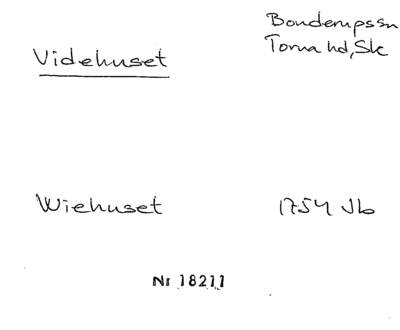 Videhuset
Bonderupssn
Torna hd, Sk
Wiehuset
1754 Jb
Nr 18211